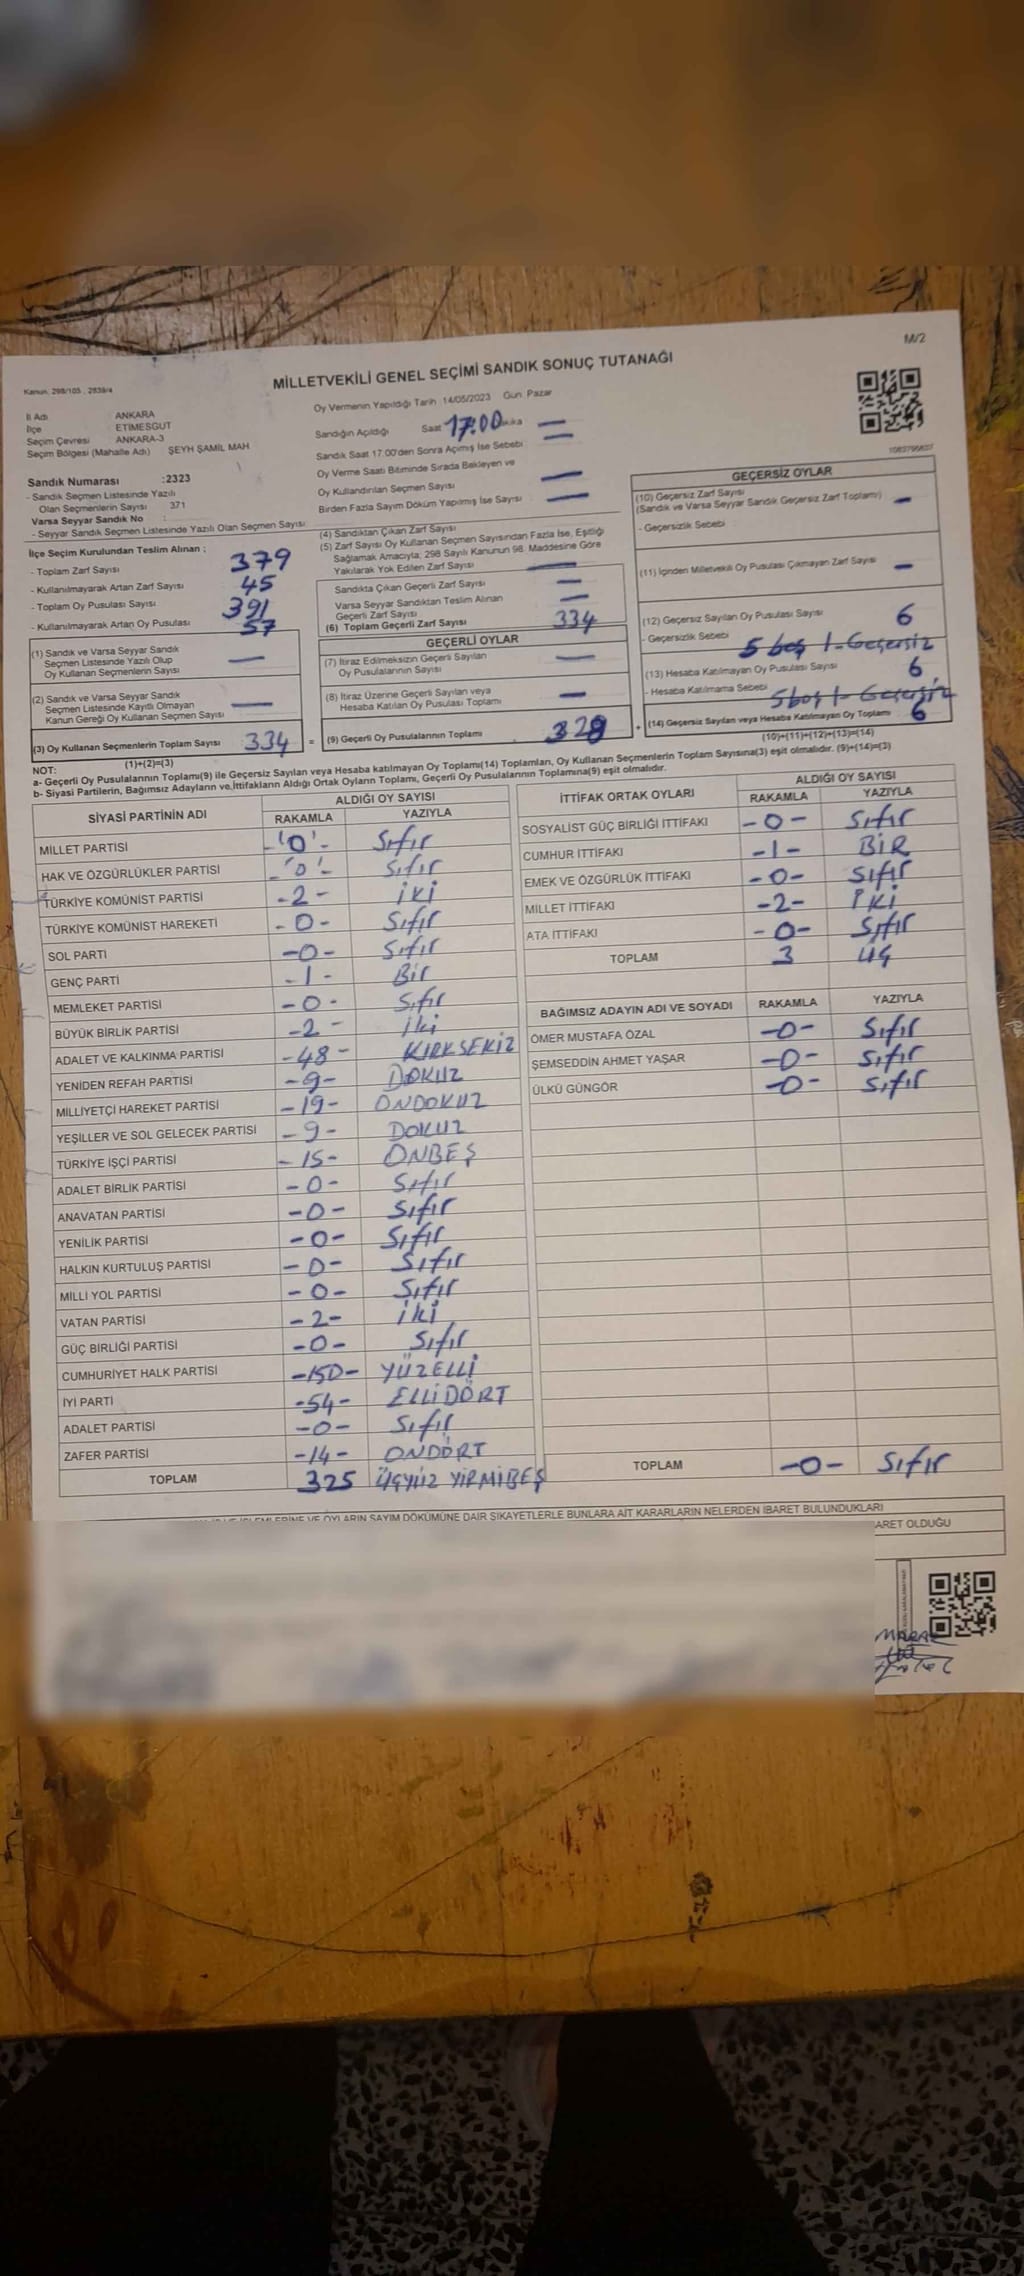 M/2
MİLLETVEKİLİ GENEL SEÇİMİ SANDIK SONUÇ TUTANAĞI
Kanun: 298/105 , 2839/4
İl Adı ANKARA
İlçe ETİMESGUT
Seçim Çevresi ANKARA-3
Seçim Bölgesi (Mahalle Adı) ŞEYH ŞAMİL MAH
Sandık Numarası :2323
- Sandık Seçmen Listesinde Yazılı
Olan Seçmenlerin Sayısı 371
Varsa Seyyar Sandık No :
- Seyyar Sandık Seçmen Listesinde Yazılı Olan Seçmen Sayısı
İlçe Seçim Kurulundan Teslim Alınan ;
- Toplam Zarf Sayısı 379
- Kullanılmayarak Artan Zarf Sayısı 45
- Toplam Oy Pusulası Sayısı 391
- Kullanılmayarak Artan Oy Pusulası 57
(1) Sandık ve Varsa Seyyar Sandık
Seçmen Listesinde Yazılı Olup
Oy Kullanan Seçmenlerin Sayısı —
(2) Sandık ve Varsa Seyyar Sandık
Seçmen Listesinde Kayıtlı Olmayan
Kanun Gereği Oy Kullanan Seçmen Sayısı —
(3) Oy Kullanan Seçmenlerin Toplam Sayısı 334 =
(1)+(2)=(3)
Oy Vermenin Yapıldığı Tarih 14/05/2023 Gün: Pazar
Sandığın Açıldığı Saat 17:00 —
Sandık Saat 17.00'den Sonra Açımış İse Sebebi —
Oy Verme Saati Bitiminde Sırada Bekleyen ve
Oy Kullandırılan Seçmen Sayısı —
Birden Fazla Sayım Döküm Yapılmış İse Sayısı —
(4) Sandıktan Çıkan Zarf Sayısı
(5) Zarf Sayısı Oy Kullanan Seçmen Sayısından Fazla İse, Eşitliği
Sağlamak Amacıyla; 298 Sayılı Kanunun 98. Maddesine Göre
Yakılarak Yok Edilen Zarf Sayısı —
Sandıkta Çıkan Geçerli Zarf Sayısı —
Varsa Seyyar Sandıktan Teslim Alınan
Geçerli Zarf Sayısı —
(6) Toplam Geçerli Zarf Sayısı 334
GEÇERLİ OYLAR
(7) İtiraz Edilmeksizin Geçerli Sayılan
Oy Pusulalarının Sayısı —
(8) İtiraz Üzerine Geçerli Sayılan veya
Hesaba Katılan Oy Pusulası Toplamı —
(9) Geçerli Oy Pusulalarının Toplamı 328 +
GEÇERSİZ OYLAR
(10) Geçersiz Zarf Sayısı
(Sandık ve Varsa Seyyar Sandık Geçersiz Zarf Toplamı) —
- Geçersizlik Sebebi
(11) İçinden Milletvekili Oy Pusulası Çıkmayan Zarf Sayısı —
(12) Geçersiz Sayılan Oy Pusulası Sayısı 6
- Geçersizlik Sebebi 5 boş 1-Geçersiz
(13) Hesaba Katılmayan Oy Pusulası Sayısı 6
- Hesaba Katılmama Sebebi 5boş 1-Geçersiz
(14) Geçersiz Sayılan veya Hesaba Katılmayan Oy Toplamı 6
(10)+(11)+(12)+(13)=(14)
NOT:
a- Geçerli Oy Pusulalarının Toplamı(9) ile Geçersiz Sayılan veya Hesaba katılmayan Oy Toplamı(14) Toplamları, Oy Kullanan Seçmenlerin Toplam Sayısına(3) eşit olmalıdır. (9)+(14)=(3)
b- Siyasi Partilerin, Bağımsız Adayların ve İttifakların Aldığı Ortak Oyların Toplamı, Geçerli Oy Pusulalarının Toplamına(9) eşit olmalıdır.
SİYASİ PARTİNİN ADI ALDIĞI OY SAYISI
RAKAMLA YAZIYLA
MİLLET PARTİSİ -'0'- Sıfır
HAK VE ÖZGÜRLÜKLER PARTİSİ -'0'- Sıfır
TÜRKİYE KOMÜNİST PARTİSİ -2- İKİ
TÜRKİYE KOMÜNİST HAREKETİ -0- Sıfır
SOL PARTİ -0- Sıfır
GENÇ PARTİ -1- Bir
MEMLEKET PARTİSİ -0- Sıfır
BÜYÜK BİRLİK PARTİSİ -2- İki
ADALET VE KALKINMA PARTİSİ -48- KIRKSEKİZ
YENİDEN REFAH PARTİSİ -9- DOKUZ
MİLLİYETÇİ HAREKET PARTİSİ -19- ONDOKUZ
YEŞİLLER VE SOL GELECEK PARTİSİ -9- DOKUZ
TÜRKİYE İŞÇİ PARTİSİ -15- ONBEŞ
ADALET BİRLİK PARTİSİ -0- Sıfır
ANAVATAN PARTİSİ -0- Sıfır
YENİLİK PARTİSİ -0- Sıfır
HALKIN KURTULUŞ PARTİSİ -0- Sıfır
MİLLİ YOL PARTİSİ -0- Sıfır
VATAN PARTİSİ -2- İki
GÜÇ BİRLİĞİ PARTİSİ -0- Sıfır
CUMHURİYET HALK PARTİSİ -150- YÜZELLİ
İYİ PARTİ -54- ELLİDÖRT
ADALET PARTİSİ -0- Sıfır
ZAFER PARTİSİ -14- ONDÖRT
TOPLAM 325 ÜÇYÜZ YİRMİBEŞ
İTTİFAK ORTAK OYLARI ALDIĞI OY SAYISI
RAKAMLA YAZIYLA
SOSYALİST GÜÇ BİRLİĞİ İTTİFAKI -0- Sıfır
CUMHUR İTTİFAKI -1- BİR
EMEK VE ÖZGÜRLÜK İTTİFAKI -0- Sıfır
MİLLET İTTİFAKI -2- İKİ
ATA İTTİFAKI -0- Sıfır
TOPLAM 3 üç
BAĞIMSIZ ADAYIN ADI VE SOYADI RAKAMLA YAZIYLA
ÖMER MUSTAFA ÖZAL -0- Sıfır
ŞEMSEDDİN AHMET YAŞAR -0- Sıfır
ÜLKÜ GÜNGÖR -0- Sıfır
TOPLAM -0- Sıfır
İŞLEMLERİNE VE OYLARIN SAYIM DÖKÜMÜNE DAİR ŞİKAYETLERLE BUNLARA AİT KARARLARIN NELERDEN İBARET BULUNDUKLARI
ARET OLDUĞU